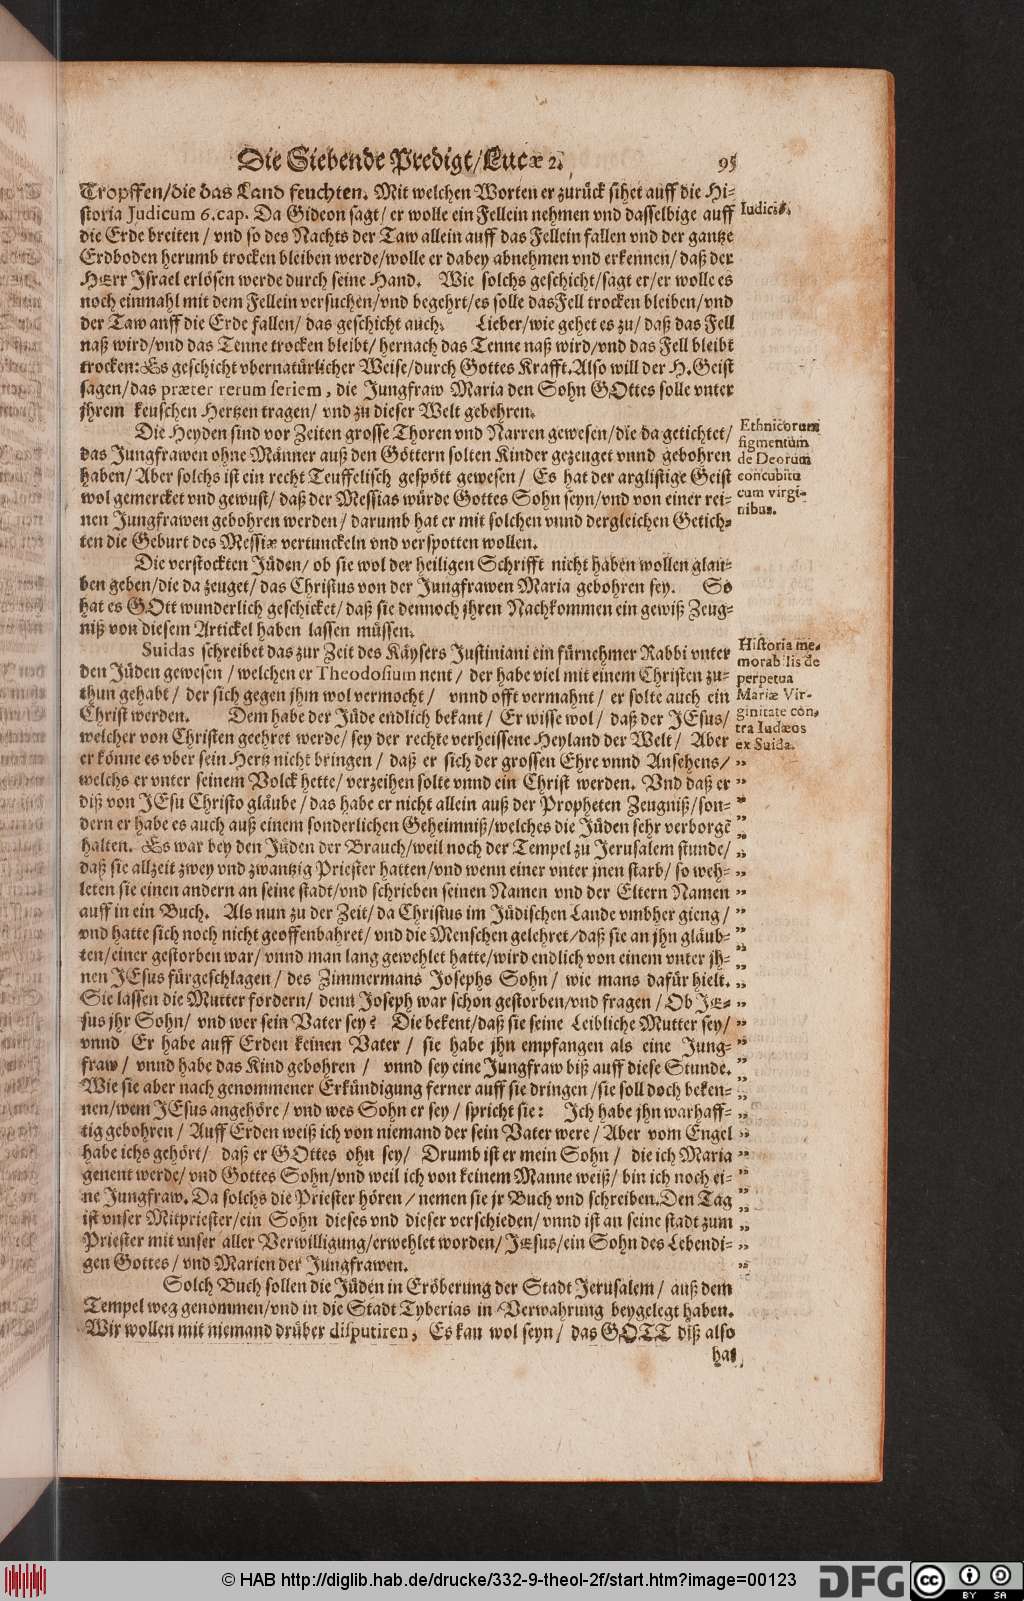 Die Siebende Predigt/ Lucæ 2. 95
Tropffen/die das Land feuchten. Mit welchen Worten er zurück sihet auff die Hi-
storia Judicum 6. cap. Da Gideon sagt/ er wolle ein Fellein nehmen vnd dasselbige auff
die Erde breiten / vnd so des Nachts der Taw allein auff das Fellein fallen vnd der gantze
Erdboden herumb trocken bleiben werde/wolle er dabey abnehmen vnd erkennen/ daß der
HErr Israel erlösen werde durch seine Hand. Wie solchs geschicht/sagt er/er wolle es
noch einmahl mit dem Fellein versuchen/vnd begehrt/es solle das Fell trocken bleiben/vnd
der Taw auff die Erde fallen/ das geschicht auch. Lieber/wie gehet es zu/ daß das Fell
naß wird/vnd das Tenne trocken bleibt/ hernach das Tenne naß wird/vnd das Fell bleibt
trocken: Es geschicht vbernatürlicher Weise/durch Gottes Krafft. Also will der H. Geist
sagen/das præter rerum seriem, die Jungfraw Maria den Sohn GOttes solle vnter
jhrem keuschen Hertzen tragen/ vnd zu dieser Welt gebehren.
Die Heyden sind vor Zeiten grosse Thoren vnd Narren gewesen/die da getichtet/
das Jungfrawen ohne Männer auß den Göttern solten Kinder gezeuget vnnd gebohren
haben/ Aber solchs ist ein recht Teuffelisch gespött gewesen / Es hat der arglistige Geist
wol gemercket vnd gewust/ daß der Messias würde Gottes Sohn seyn/vnd von einer rei-
nen Jungfrawen gebohren werden/ darumb hat er mit solchen vnnd dergleichen Getich-
ten die Geburt des Messiæ vertunckeln vnd verspotten wollen.
Die verstockten Jüden/ ob sie wol der heiligen Schrifft nicht haben wollen glau-
ben geben/die da zeuget/ das Christus von der Jungfrawen Maria gebohren sey. So
hat es GOtt wunderlich geschicket/ daß sie dennoch jhren Nachkommen ein gewiß Zeug-
niß von diesem Artickel haben lassen müssen.
Suidas schreibet das zur Zeit des Käysers Justiniani ein fürnehmer Rabbi vnter
den Jüden gewesen / welchen er Theodosium nent / der habe viel mit einem Christen zu-
thun gehabt / der sich gegen jhm wol vermocht / vnnd offt vermahnt / er solte auch ein
Christ werden. Dem habe der Jüde endlich bekant / Er wisse wol / daß der JEsus/
welcher von Christen geehret werde/ sey der rechte verheissene Heyland der Welt/ Aber
er könne es vber sein Hertz nicht bringen / daß er sich der grossen Ehre vnnd Ansehens/
welchs er vnter seinem Volck hette/ verzeihen solte vnnd ein Christ werden. Vnd daß er
diß von JEsu Christo gläube / das habe er nicht allein auß der Propheten Zeugniß/son-
dern er habe es auch auß einem sonderlichen Geheimniß/welches die Jüden sehr verborgē
halten. Es war bey den Jüden der Brauch/weil noch der Tempel zu Jerusalem stunde/
daß sie allzeit zwey vnd zwantzig Priester hatten/vnd wenn einer vnter jnen starb/ so weh-
leten sie einen andern an seine stadt/vnd schrieben seinen Namen vnd der Eltern Namen
auff in ein Buch. Als nun zu der Zeit/ da Christus im Jüdischen Lande vmbher gieng /
vnd hatte sich noch nicht geoffenbahret/ vnd die Menschen gelehret/daß sie an jhn gläub-
ten/einer gestorben war/ vnnd man lang gewehlet hatte/wird endlich von einem vnter jh-
nen JEsus fürgeschlagen/ des Zimmermans Josephs Sohn/ wie mans dafür hielt.
Sie lassen die Mutter fordern/ denn Joseph war schon gestorben/vnd fragen / Ob JE-
sus jhr Sohn/ vnd wer sein Vater sey? Die bekent/daß sie seine Leibliche Mutter sey/
vnnd Er habe auff Erden keinen Vater / sie habe jhn empfangen als eine Jung-
fraw / vnnd habe das Kind gebohren / vnnd sey eine Jungfraw biß auff diese Stunde.
Wie sie aber nach genommener Erkündigung ferner auff sie dringen /sie soll doch beken-
nen/wem JEsus angehöre / vnd wes Sohn er sey / spricht sie: Ich habe jhn warhaff-
tig gebohren / Auff Erden weiß ich von niemand der sein Vater were / Aber vom Engel
habe ichs gehört/ daß er GOttes ohn sey/ Drumb ist er mein Sohn / die ich Maria
genent werde/ vnd Gottes Sohn/vnd weil ich von keinem Manne weiß/ bin ich noch ei-
ne Jungfraw. Da solchs die Priester hören / nemen sie jr Buch vnd schreiben. Den Tag
ist vnser Mitpriester/ein Sohn dieses vnd dieser verschieden/ vnnd ist an seine stadt zum
Priester mit vnser aller Verwilligung/erwehlet worden/ JEsus/ein Sohn des Lebendi-
gen Gottes / vnd Marien der Jungfrawen.
Solch Buch sollen die Jüden in Eröberung der Stadt Jerusalem/ auß dem
Tempel weg genommen/vnd in die Stadt Tyberias in Verwahrung beygelegt haben.
Wir wollen mit niemand drüber disputiren, Es kan wol seyn/ das GOTT diß also
hat
Iudic. 6.
Ethnicorum
figmentum
de Deorum
concubitu
cum virgi-
nibus.
Historia me-
morabilis de
perpetua
Mariæ Vir-
ginitate con-
tra Iudæos
ex Suida.
© HAB http://diglib.hab.de/drucke/332-9-theol-2f/start.htm?image=00123
DFG
cc
BY SA